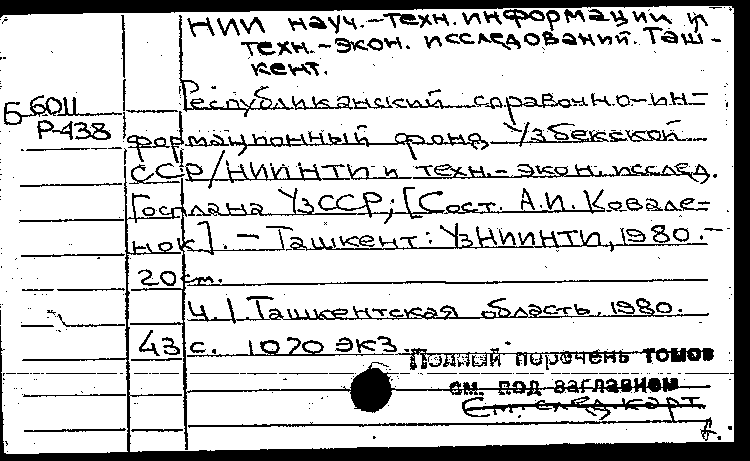 НИИ науч.-техн. информации и
техн.-экон. исследований. Таш-
кент.
Республиканский справочно-ин-
Б-6011
Р-438
формационный фонд Узбекской
ССР/НИИНТИ и техн.-экон. исслед.
Госплана УзССР; [Сост. А.И. Ковале-
нок]. — Ташкент: УзНИИНТИ, 1980. —
20 см.
Ч. 1. Ташкентская область. 1980.
43 с. 1070 экз.
Полный перечень томов
см. под заглавием
См. след. карт.